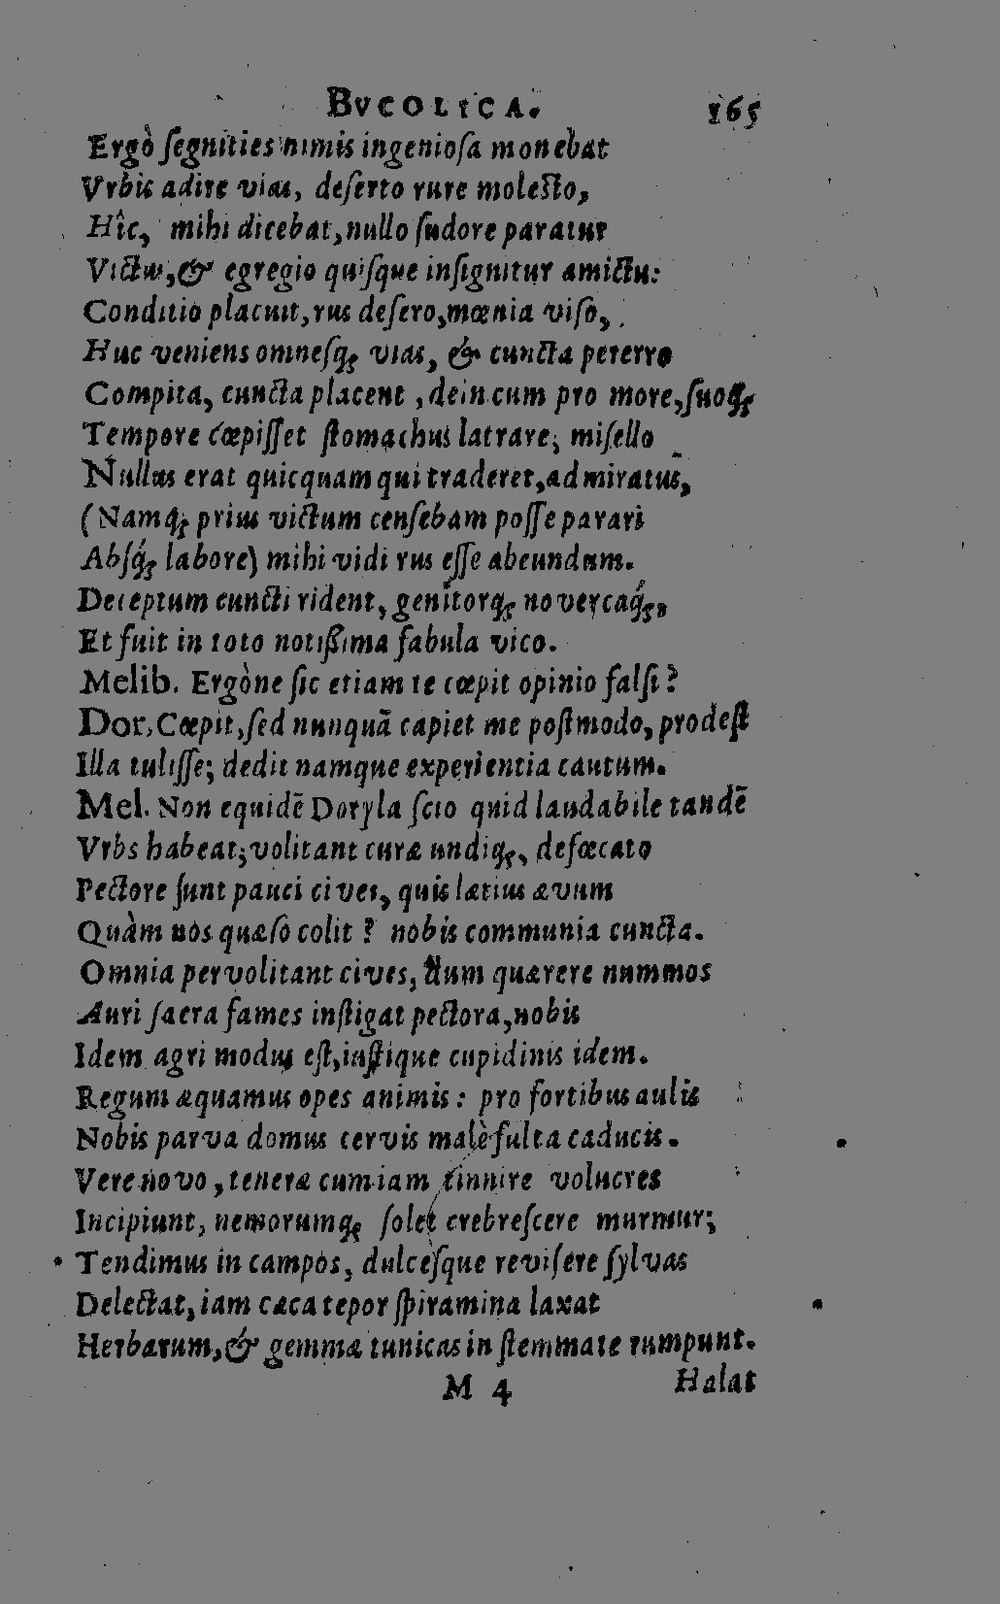 BVCOLICA. 165
Ergò ſegnities nimis ingenioſa monebat
Vrbis adire vias, deſerto rure moleſto,
Hîc, mihi dicebat, nullo ſudore paratur
Victus, & egregio quiſque inſignitur amictu:
Conditio placuit, rus deſero, mœnia viſo,
Huc veniens omneſq; vias, & cuncta pererro
Compita, cuncta placent, dein cum pro more, ſuoq;
Tempore cœpiſſet ſtomachus latrare, miſello
Nullus erat quicquam qui traderet, admiratus,
(Namq; prius victum cenſebam poſſe parari
Abſq́; labore) mihi vidi rus eſſe abeundum.
Deceptum cuncti rident, genitorq; novercaq́;,
Et fuit in toto notißima fabula vico.
Melib. Ergòne ſic etiam te cœpit opinio falſi?
Dor. Cœpit, ſed nunquā capiet me poſtmodo, prodeſt
Illa tuliſſe; dedit namque experientia cautum.
Mel. Non equidē Doryla ſcio quid laudabile tandē
Vrbs habeat; volitant curæ undiq;, defœcato
Pectore ſunt pauci cives, quis lætius ævum
Quàm nos quæſo colit? nobis communia cuncta.
Omnia pervolitant cives, dum quærere nummos
Auri ſacra fames inſtigat pectora, nobis
Idem agri modus eſt, iuſtique cupidinis idem.
Regum æquamus opes animis: pro fortibus aulis
Nobis parva domus cervis malè fulta caducis.
Vere novo, teneræ cum iam tinnire volucres
Incipiunt, nemorumq; ſolet crebreſcere murmur;
Tendimus in campos, dulceſque reviſere ſylvas
Delectat, iam cæca tepor ſpiramina laxat
Herbarum, & gemmæ tunicas in ſtemmate rumpunt.
M 4 Halat